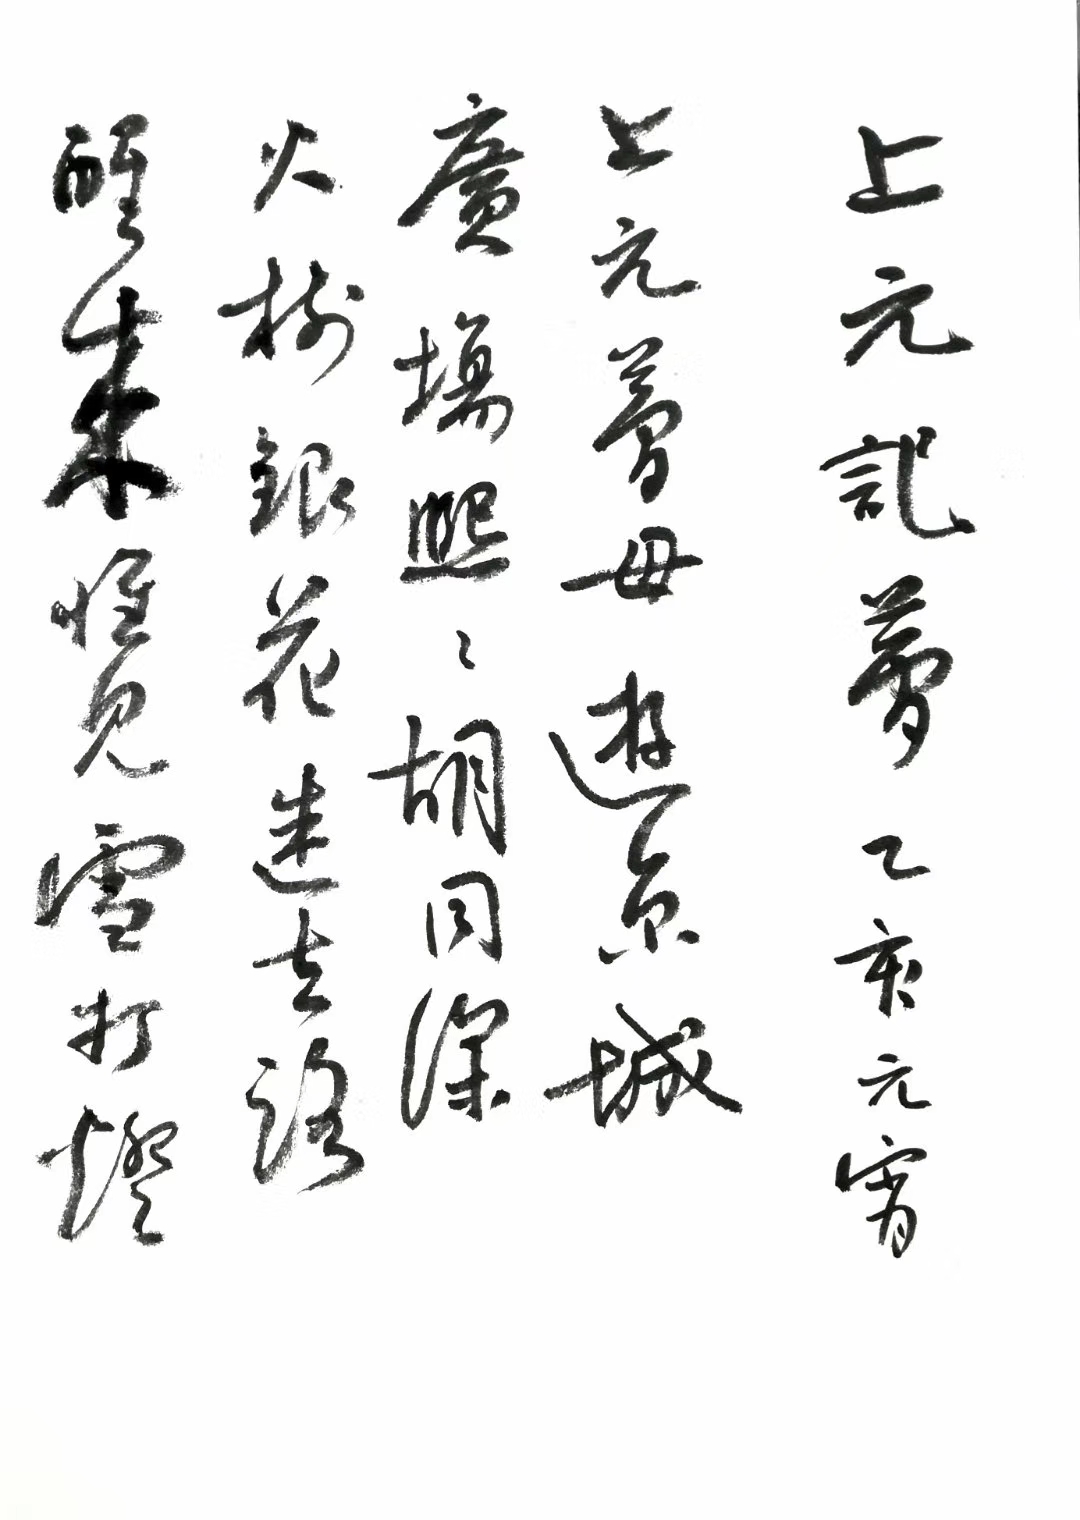 上元記夢 乙亥元宵
上元夢母遊京城
廣場熙〻胡同深
火樹銀花迷去路
醒來惟見雪打燈